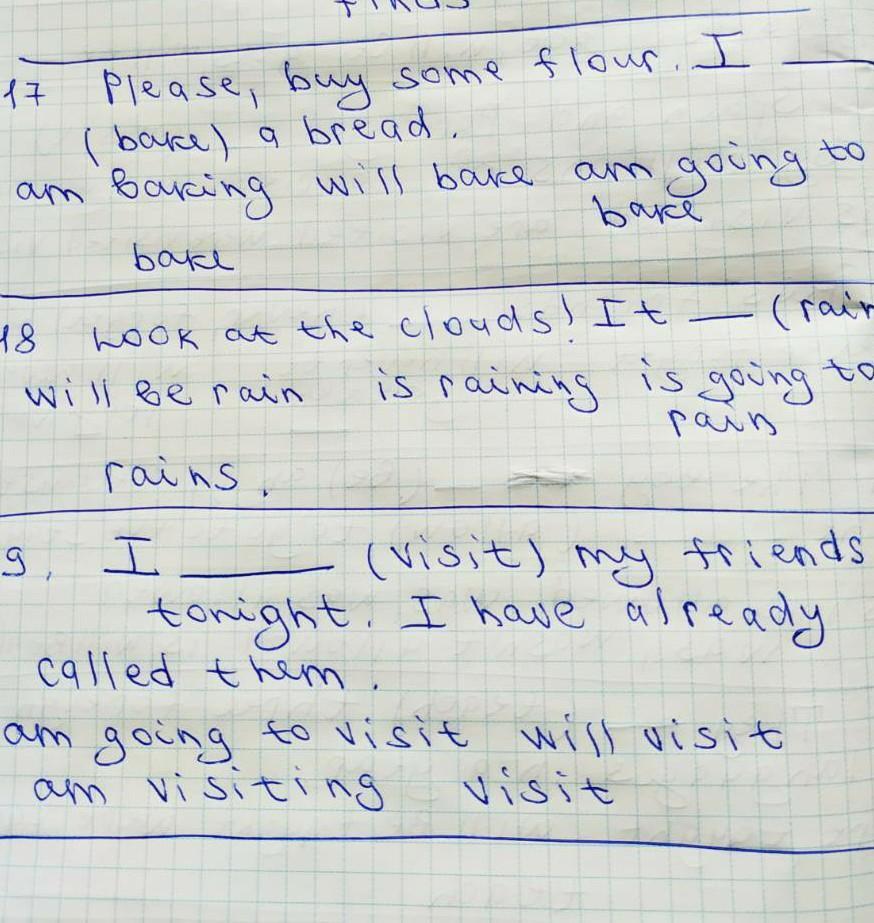 17 Please, buy some flour. I ___
(bake) a bread.
am baking will bake am going to
bake
bake
18 Look at the clouds! It — (rain
will be rain is raining is going to
rain
rains.
9. I ____ (visit) my friends
tonight. I have already
called them.
am going to visit will visit
am visiting visit